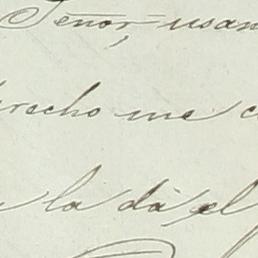 Señor, usan
recho me c
la dá, el